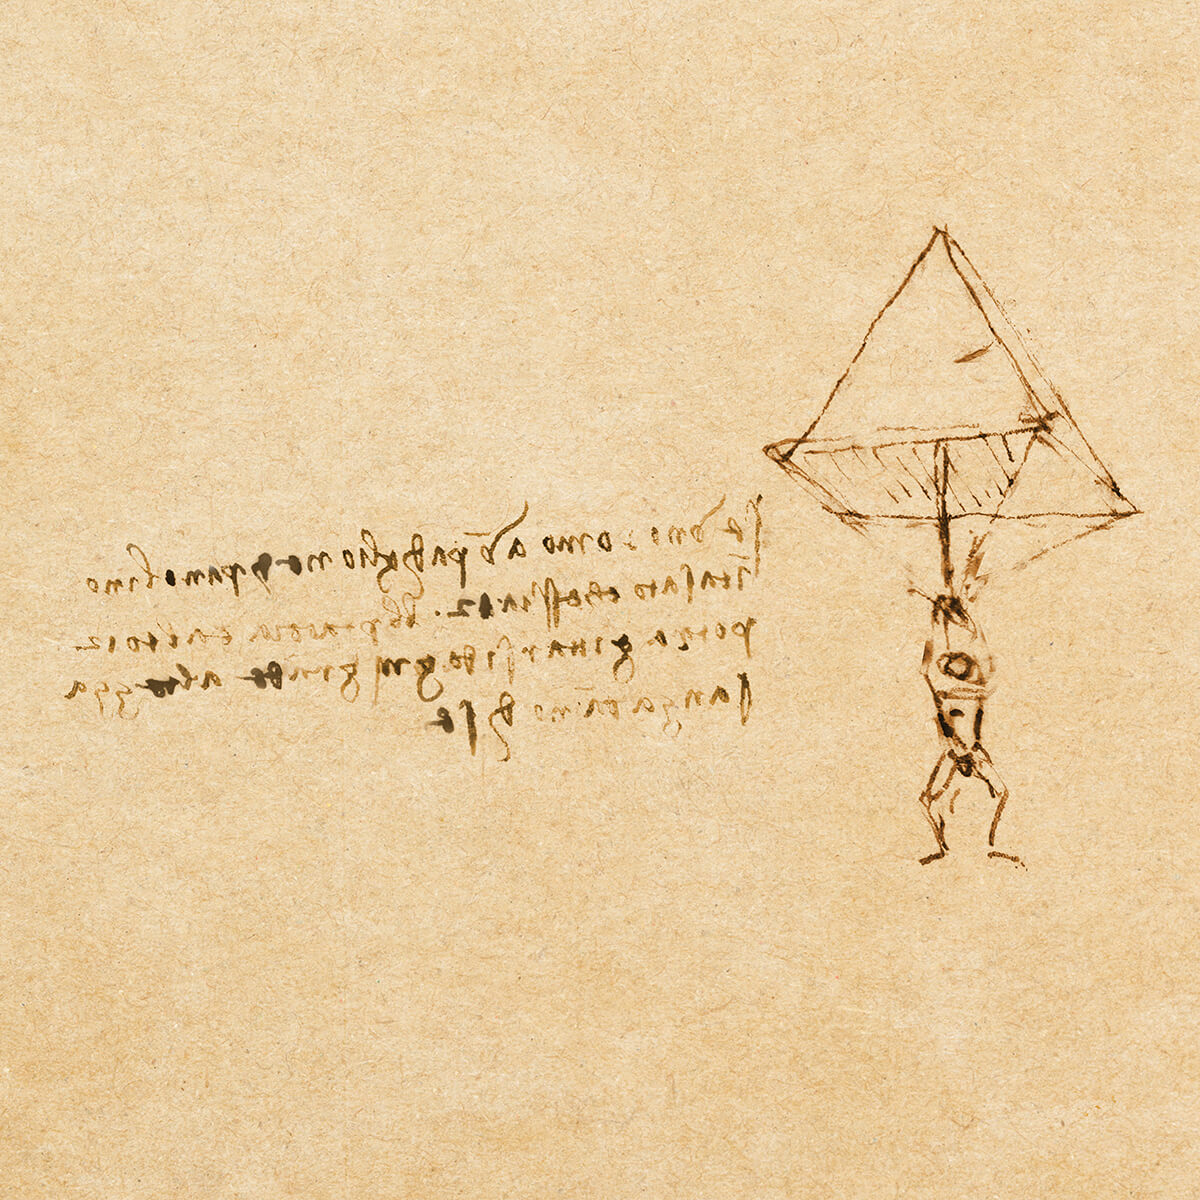 se uno omo a ū padiglione di pano lino
ītasato che ssia 12 br per faccia e alto 12
potra gittarsi dogni grande alteza
sanza dāno di se